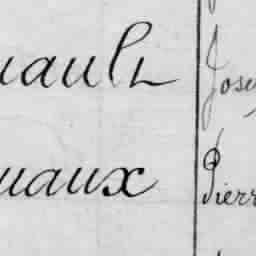 uault Jose
uaux Pierr